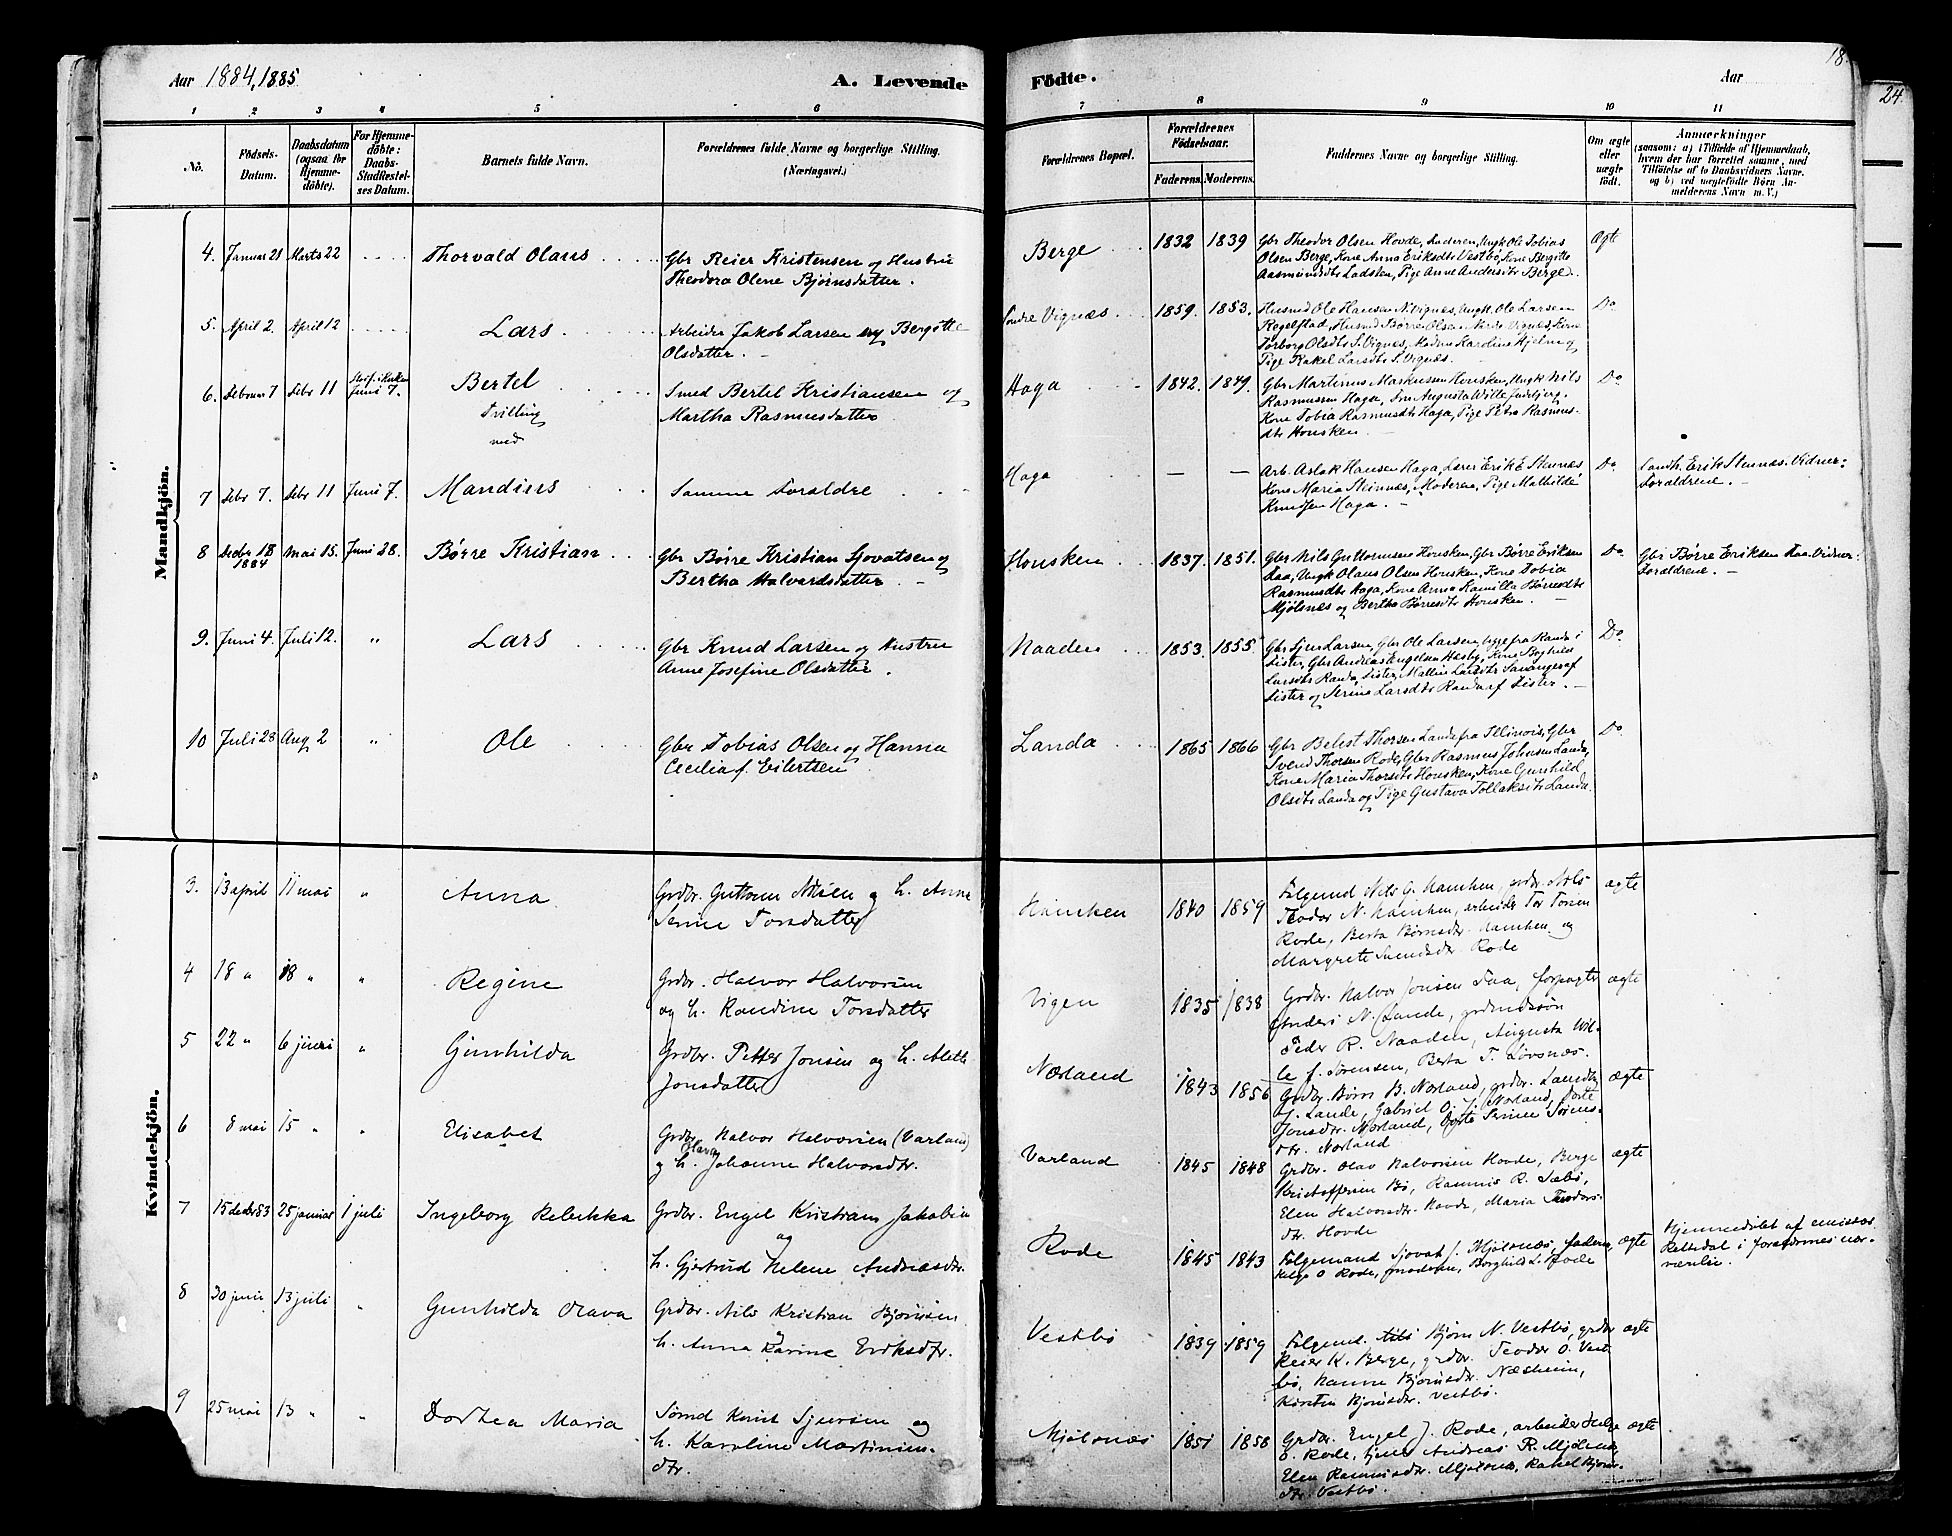 Aar 1884, 1885
A. Levende
Födte.
Aar
18
24
1 2 3 4 5 6 7 8 9 10 11
No.
Födsels-
Datum.
Daabsdatum
(ogsaa for
Hjemme-
döbte).
For Hjemme-
döbte:
Daabs-
Stadfæstel-
ses Datum.
Barnets fulde Navn.
Forældrenes fulde Navne og borgerlige Stilling.
(Næringsvei.)
Forældrenes Bopæl.
Forældrenes
Födselsaar.
Faderens. Moderens.
Faddernes Navne og borgerlige Stilling.
Om ægte
eller
uægte
födt.
Anmærkninger
(saasom: a) i Tilfælde af Hjemmedaab,
hvem der har forrettet samme, med
Tilföielse af to Daabsvidners Navne,
og b) ved uægtefödte Börn An-
melderens Navn m. V.)
Mandkjön.
4. Januar 28 Marts 22 Thorvald Olaus
Gbr Reier Kristensen og Hustru
Theodora Olene Bjørnsdatter.
Berge 1832 1839
Gbr Theodor Olsen Hovde, Faderen, Ungk Ole Tobias
Olsen Berge, Kone Anna Eriksdtr Vestbø, Kone Bergitte
Aasmundsdtr Ladsten, Pige Anne Andersdtr Berge.
Ægte
5. April 2. April 12 Lars
Arbeider Jakob Larsen og Bergitte
Olsdatter.
Søndre Vignæs 1859. 1853.
Husmd Ole Hansen N. Vignes, Ungk. Ole Larsen
Rogelstad, Husmd Børre Olsen Nordre Vignes, Kone
Torborg Olsdtr S. Vignes, Madam Karoline Hjelm og
Pige Rakel Larsdtr S. Vignæs.
Do
6. Februar 7 Febr 11 Juni 7. Bertel
Tvilling
med
Smed Bertel Kristiansen og
Martha Rasmusdatter
Haga 1842. 1849.
Gbr Martinus Markussen Housken, Ungk Nils
Rasmussen Haga, Augusta Wille Judeberg.
Kone Tobia Rasmusdtr Haga, Pige Petra Rasmus-
dtr Housken.
Do
7 Febr 7. Febr 11 Juni 7. Mandius
Samme Forældre
Haga — —
Arb. Aslak Hansen Haga, Lærer Erik E Stennæs
Kone Maria Stennæs, Moderen, Pige Mathilde
Knudsen Haga.
Do
Landh. Erik Stennæs. Vidner:
Forældrene.
8 Decbr 18
1884
Mai 15. Juni 28. Børre Kristian
Gbr Børre Kristian Sjovatsen og
Bertha Halvardsdatter
Housken 1837. 1851.
Gbr Nils Guttormsen Housken, Gbr Børre Eriksen
Faa, Ungk Olaus Olsen Housken, Kone Tobia
Rasmusdtr Haga, Kone Anna Kamilla Børresdtr
Mjølsnes og Bertha Børresdtr Housken.
Do
Gbr Børre Eriksen Faa. Vidner:
Forældrene.
9. Juni 4. Juli 12. " Lars
Gbr Knud Larsen og Hustru
Anne Josefine Olsdatter.
Naaden 1853. 1855
Gbr Sjur Larsen, Gbr Ole Larsen, begge fra Randa i
Fister, Gbr Andreas Engelsen Hesby, Kone Boghild
Larsdtr Randa, Fister, Malline Larsdtr
Fister og Serina Larsdtr Randa af Fister.
Do
10 Juli 28 Aug 2 " Ole
Gbr Tobias Olsen og Hanna
Cecilia f. Eilertsen
Landa 1865 1866
Gbr Belest Thorsen Landa fra Illinois, Gbr
Svend Thorsen Rode, Gbr Rasmus Johnsen Landa,
Kone Maria Thorsdtr Housken, Kone Gunhild
Olsdtr Landa og Pige Gustava Tollaksdtr Landa.
Do
Kvindekjön.
3. 13 april 11 mai " Anna
Grdbr. Guttorm Nilsen og h. Anne
Serine Torsdatter
Hausken 1840 1859
Følgemd Nils G. Hausken, grdbr. Nils
Teodor N. Hausken, arbeider Tor Torsen
Rode, Berta Børnsdr. Hausken og
Margrete Svendsdr. Rode
ægte
4 18 " 18 " " Regine
Grdbr. Halvor Halvorsen
og h. Randine Torsdatter
Vigen 1835 1838
Grdbr. Halvor Jonsen Faa, forpagter
Anders N. Lande, grdmdssøn
Peder R. Naaden, Augusta Wil-
le f. Sørensen, Berta T. Løvsnæs.
ægte
5 22 " 6 juni " Gunhilda
Grdbr. Petter Jonsen og h. Alette
Jonsdatter
Nærland 1843 1856
Grdbr. Børn B. Nærland, grdbr.
J. Lande, Gabriel O. J. Nærland,
Jonsdr. Nærland, Serine Sørens-
dtr. Nærland
ægte
6 8 mai 15 " " Elisabet
Grdbr. Halvor Halvorsen (Varland)
og h. Johanne Olava Halvorsdtr.
Varland 1845 1848
Grdbr. Olav Halvorsen Hovde, Berge
Kristoffersen Bø, Rasmus R. Sæbø,
Elen Halvorsdr. Hovde, Maria Teodors-
dtr. Hovde
ægte
7 15 decbr 83 25 januar 1 juli Ingeborg Rebekka
Grdbr. Engel Kristians Jakobsen
og
h. Gjertrud Helene Andreasdr.
Rode 1845 1843
Følgemand Sjovat J. Mjølsnæs, faderen,
Helge O Rode, moderen, Borghild L. Rode
ægte
Hjemmedøbt af emissær
Rettedal i forældrenes nær-
værelse.
8 30 juni 13 juli " Gunhilda Olava
Grdbr. Nils Kristian Bjørnsen
og
h. Anna Karine Eriksdtr.
Vestbø 1839 1859
Følgemd. Bjørn N. Vestbø, grdbr
Reier K. Berge, grdbr. Teodor O. Vest
bø, Hanne Bjørnsdr. Næsheim,
Kirsten Bjørnsdr. Vestbø.
ægte
9 25 mai 13 " " Dortea Maria
Smed Knut Sjursen og
h. Karoline Martinius-
dtr.
Mjølsnæs 1851 1858
Grdbr. Engel J. Rode, arbeider Helge
O. Rode, tjener Andreas R. Mjølsnæs,
Elen Rasmusdr. Mjølsnæs, Rakel Bjørns-
dtr. Vestbø.
ægte